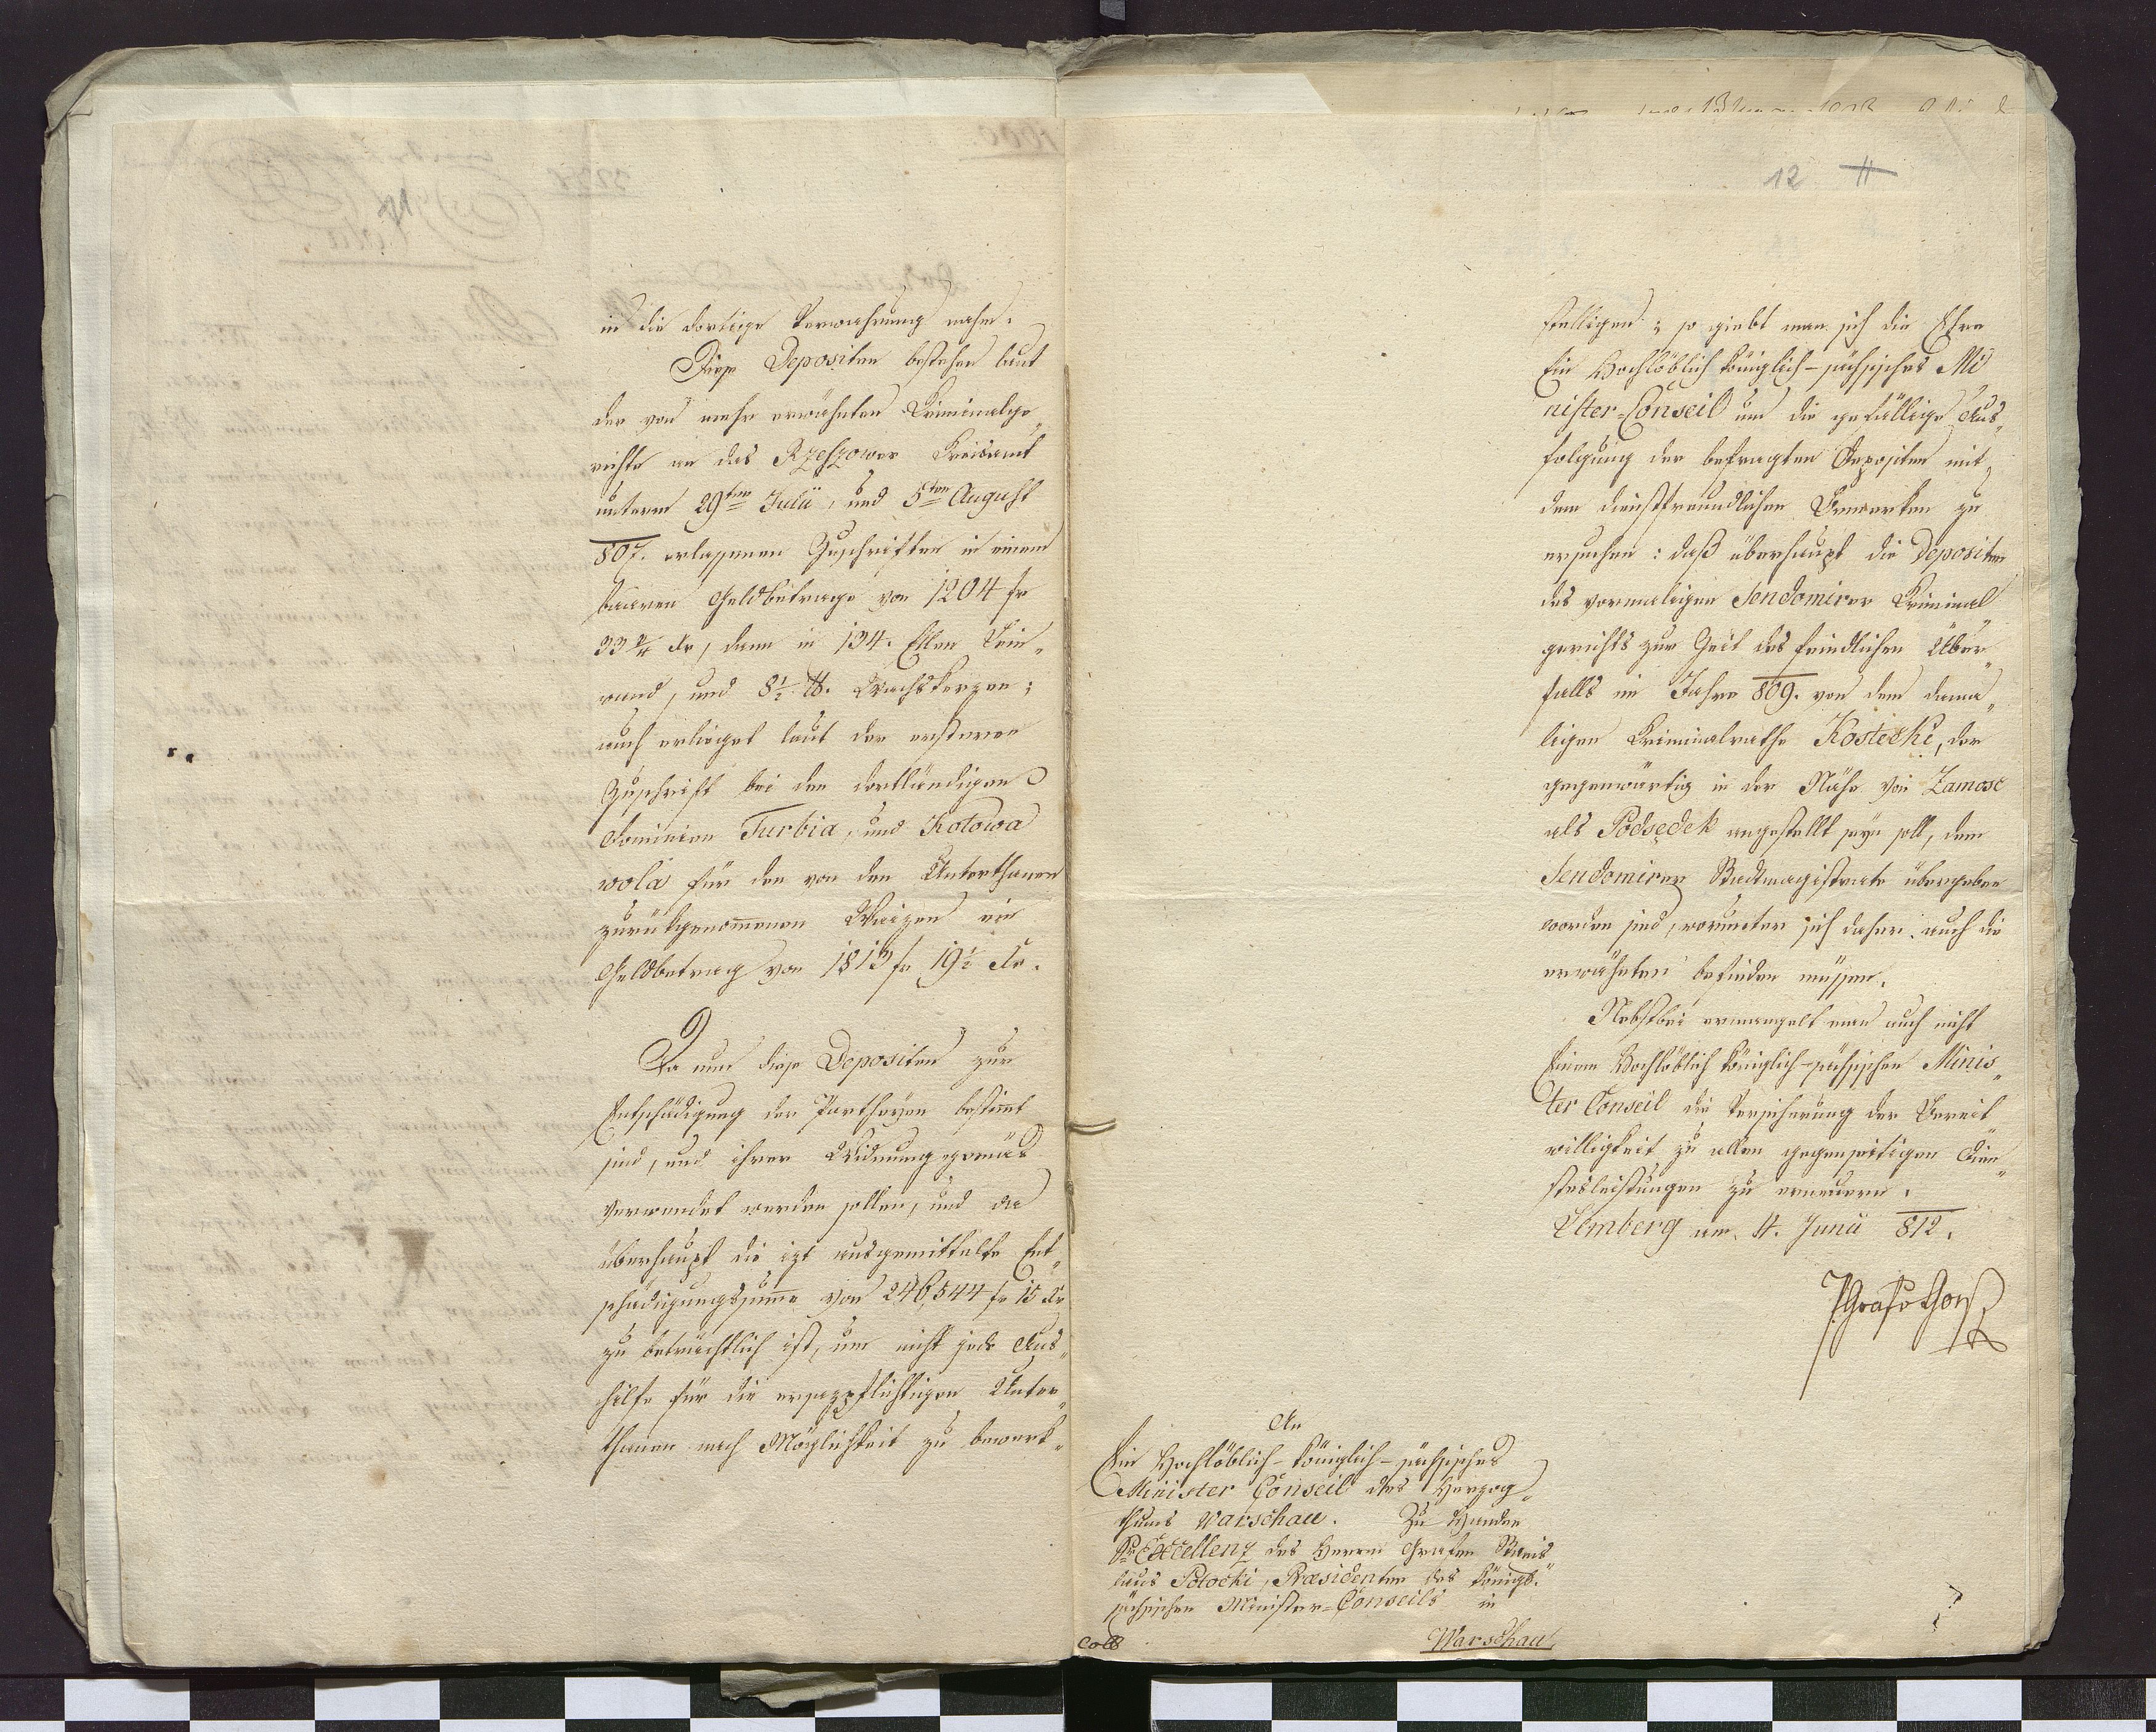 in die dortige Verwahrung nahm.
Diese Depositen bestehen laut
der von mehr erwähnten Criminalge„
richte an das Rzeszower Kreisamt
unterm 29ten Julii, und 5ten August
807. erlassenen Zuschriften in einem
baaren Geldbetrage von 1204 fr
33 2/4 xr, dann in 134. Ellen Lein„
wand, und 8½ ℔. Wachskerzen;
auch erlieget laut der ersteren
Zuschrift bei den dortländigen
Dominien Turbia, und Kotowa
wola für den von den Unterthanen
zurükgenommenen Waizen ein
Geldbetrag von 1813 fr 19½ xr.
Da nun diese Depositen zur
Entschädigung der Partheyen bestimmt
sind, und ihrer Widmung gemäs
verwendet werden sollen, und da
überhaupt die izt ausgemittelte Ent„
schädigungssumme von 246,544 fr 15 xr
zu beträchtlich ist, um nicht jede Aus„
hilfe für die ersazpflichtigen Unter„
thanen nach Möglichkeit zu bewerk„
12 11
stelligen; so giebt man sich die Ehre
Ein Hochlöblich königlich-sächsisches Mi
nister-Conseil um die gefällige Aus„
folgung der befragten Depositen mit
dem dienstfreundlichen Bemerken zu
ersuchen: daß überhaupt die Depositen
des vormaligen Sendomirer Criminal
gerichts zur Zeit des feindlichen Über„
falls im Jahre 809. von dem dama„
ligen Criminalrathe Kostecki, der
gegenwärtig in der Nähe von Zamosc
als Podsędek angestellt seyn soll, dem
Sendomirer Stadtmagistrate übergeben
worden sind, worunter sich daher auch die
erwähnten befinden müssen.
Nebstbei ermangelt man auch nicht
Einem Hochlöblich königlich-sächsischen Minis„
ter Conseil die Versicherung der Bereit„
willigkeit zu allen gegenseitigen Dien„
stesleistungen zu erneuern.
Lemberg am 4. Junii 812.
An
Ein Hochlöblich-königlich-sächsisches
Minister Conseil des Herzog„
thums Warschau. Zu Handen
Sr Excellenz des Herrn Grafen Stanis„
laus Potocki, Præsidenten des königl.
sächsischen Minister-Conseils in
Warschau
Coll